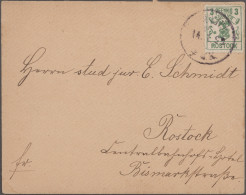 3 3
ROSTOCK
14.
Herrn stud jur. C. Schmidt
Rostock
Centralbahnhofs-Hotel
Bismarkstraße
fr.